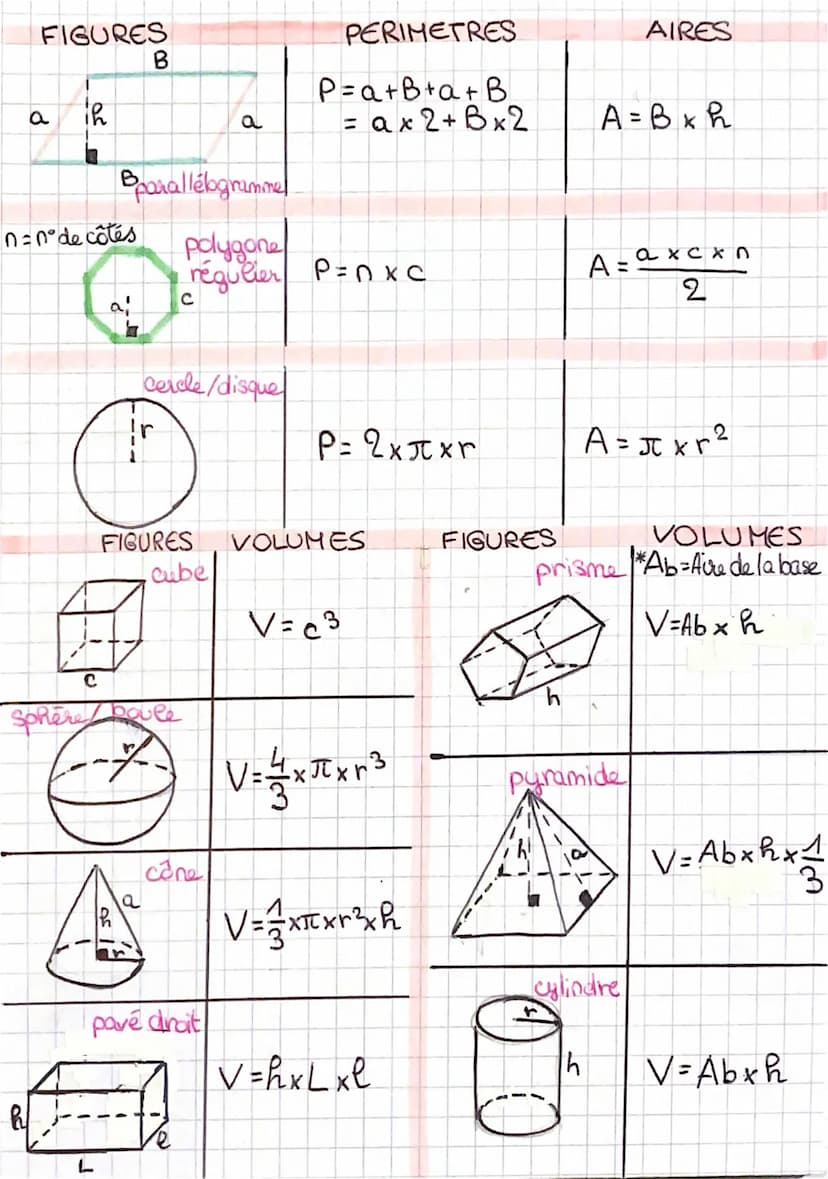 FIGURES PERIMETRES AIRES
B
a h a
B
parallélogramme
P = a + B + a + B
= a x 2 + B x 2
A = B x h
n = n° de côtés
polygone
régulier
a c
P = n x c
A = a x c x n / 2
cercle/disque
r
P = 2 x π x r
A = π x r²
FIGURES VOLUMES
cube
c
V = c³
sphère/boule
r
V = 4/3 x π x r³
cône
a
h
r
V = 1/3 x π x r² x h
pavé droit
h
l
L
V = h x L x l
FIGURES VOLUMES
prisme
*Ab = Aire de la base
h
V = Ab x h
pyramide
h a
V = Ab x h x 1/3
cylindre
r
h
V = Ab x h